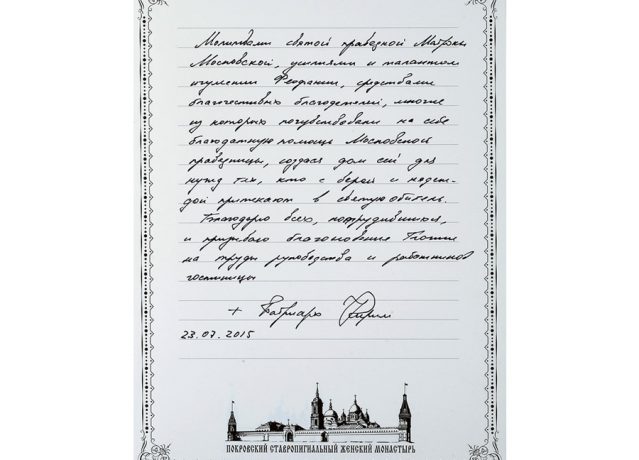 Молитвами святой праведной Матроны
Московской, усилиями и талантом
игумении Феофании, средствами
благочестивых благодетелей, многие
из которых почувствовали на себе
благодатную помощь Московской
праведницы, создан дом сей для
нужд тех, кто с верой и надеж-
дой притекают в святую обитель.
Благодарю всех, потрудившихся,
и призываю благословение Божие
на труды руководства и работников
гостиницы
+ Патриарх Кирилл
23.07.2015
ПОКРОВСКИЙ СТАВРОПИГИАЛЬНЫЙ ЖЕНСКИЙ МОНАСТЫРЬ